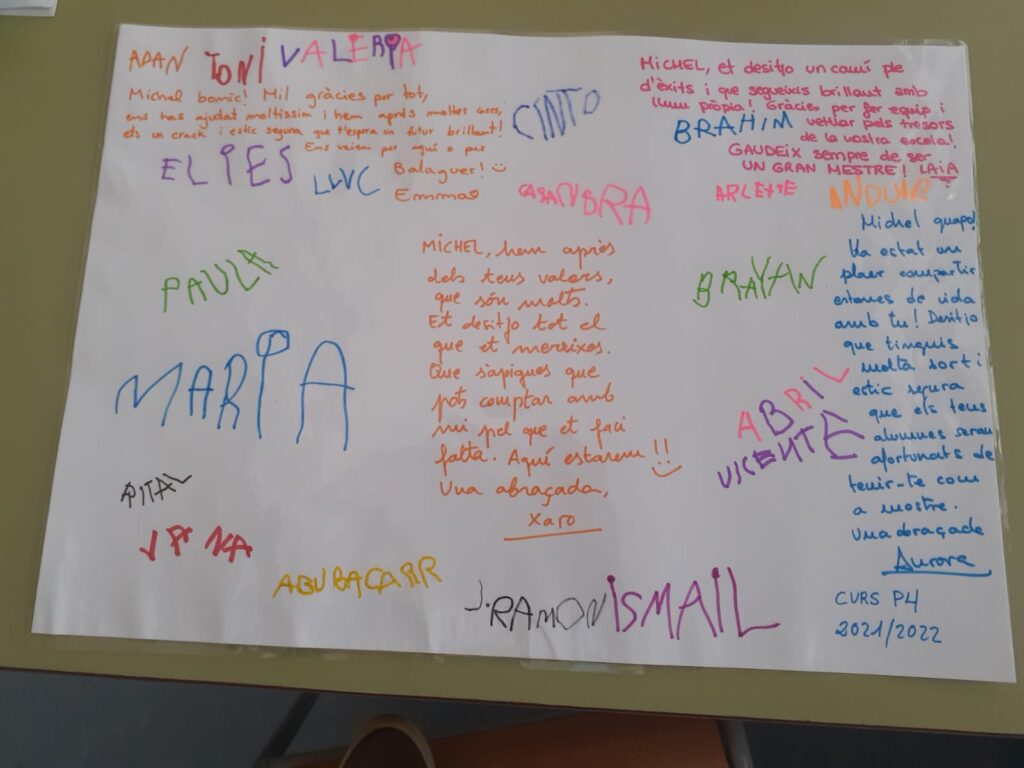 ADAN TONI VALERIA
Michel bonic! Mil gràcies per tot,
ens has ajudat moltíssim i hem après moltes coses,
ets un crack i estic segura que t'espera un futur brillant!
Ens veiem per aquí o per
Balaguer!
Emma
ELIES
LLUC
CINTO
MICHEL, et desitjo un camí ple
d'èxits i que segueixis brillant amb
llum pròpia! Gràcies per fer equip i
vetllar pels tresors
de la vostra escola!
GAUDEIX sempre de ser
UN GRAN MESTRE! LAIA
BRAHIM
CASANDRA
ARLETTE
PAULA
MICHEL, hem après
dels teus valors,
que són molts.
Et desitjo tot el
que et mereixes.
Que sàpigues que
pots comptar amb
mi pel que et faci
falta. Aquí estarem!!
Una abraçada,
Xaro
BRAYAN
Michel guapo!
Ha estat un
plaer compartir
estones de vida
amb tu! Desitjo
que tinguis
molta sort i
estic segura
que els teus
alumnes seran
afortunats de
tenir-te com
a mestre.
Una abraçada
Aurora
MARIA
ABRIL
VICENTE
ABUBACARR
J. RAMON ISMAIL
CURS P4
2021/2022